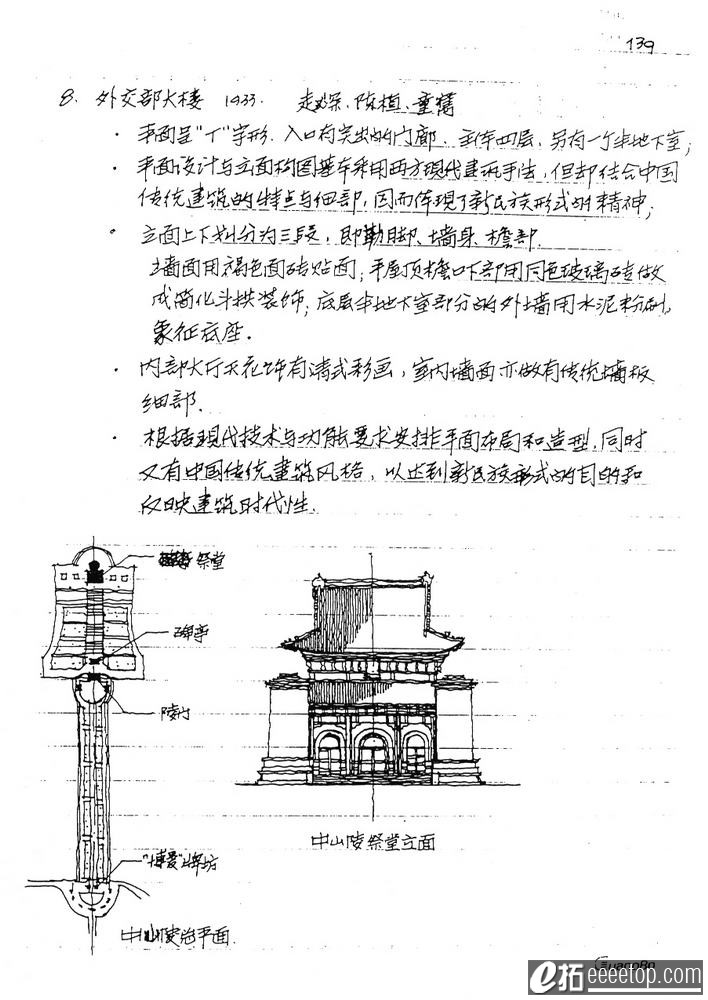 139
8. 外交部大楼 1933. 赵深、陈植、童寯
· 平面呈"T"字形.入口有突出的门廊.主体四层.另有一个半地下室;
· 平面设计与立面构图基本采用西方现代建筑手法,但却结合中国
传统建筑的特点与细部,因而体现了新民族形式的精神;
· 立面上下划分为三段,即勒脚、墙身、檐部.
墙面用褐色面砖贴面;平屋顶檐口下部用同色玻璃砖做
成简化斗拱装饰;底层半地下室部分的外墙用水泥粉刷,
象征底座.
· 内部大厅天花饰有清式彩画,室内墙面亦做有传统墙板
细部.
· 根据现代技术与功能要求安排平面布局和造型.同时
又有中国传统建筑风格,以达到新民族形式的目的和
反映建筑时代性.
祭堂
碑亭
陵门
"博爱"牌坊
中山陵祭堂立面
中山陵总平面.
GuangBo
e拓 eeeetop.com